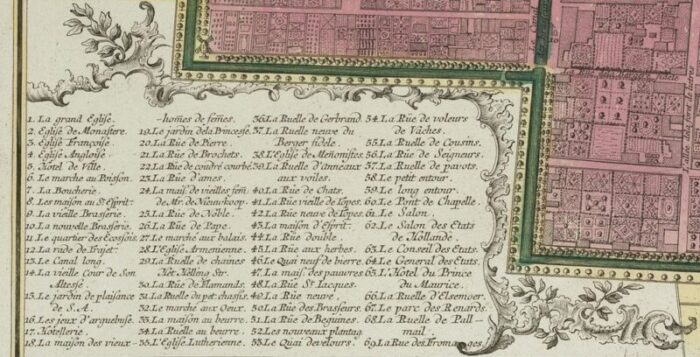 1. La grand Eglise.
2. Eglise de Monastere.
3. Eglise Françoise
4. Eglise Angloise
5. Hotel de Ville.
6. Le marche au Poisson.
7. La Boucherie.
8. Les maison au St Esprit:
9. La vieille Brasserie.
10. La nouvelle Brasserie.
11. Le quartier des Ecossois.
12. La rade de Trajet:
13. Le Canal long.
14. La vieille Cour de Son
Altesse
15. Le jardin de plaisance
de S. A.
16. Les jeux d'arquebuse.
17. Notellerie.
18. La maison des vieux -
- homes de femes.
19. Le jardin de la Princesse.
20. La Rüe de Pierre.
21. La Rüe de Brochets.
22. La Rüe de coudre courbé.
23. La Rüe d'ames.
24. La mais. de vieilles fem
de Mr. de Nieuwkoop.
25. La Rüe de Noble.
26. La Rüe de Pape.
27. Le marché aux balais.
28. L'Eglise Armenienne.
29. La Ruelle de chaines
Het Nölleng Str.
30. La Rüe de Flamands.
31. La Ruelle du pet: chassis.
32. Le marché aux Oeux.
33. La maison au beurre.
34. La Ruelle au beurre.
35. L'Eglise Lutherienne.
36. La Ruelle de Gerbrand.
37. La Ruelle neuve du
Berger fidele.
38. L'Eglise de Menonistes.
39. La Ruelle d'anneaux
aux voiles.
40. La Rüe de Chats.
41. La Rüe vieille de Topes.
42. La Rüe neuve de Topes.
43. La maison d'Esprit.
44. La Rüe double.
45. La Rüe aux herbes.
46. Le Quai neuf de bierre.
47. La mais. des pauvres
48. La Rüe St. Jacques.
49. La Rüe neuve.
50. La Rüe des Brasseurs.
51. La Rüe de Beguines.
52. Les nouveaux plantag.
53. Le Quai de velours.
54. La Rüe de voleurs
de Vâches.
55. La Ruelle de Cousins.
56. La Rüe de Seigneurs.
57. La Ruelle de pavots.
58. Le petit entour.
59. Le long entour.
60. Le Pont de Chapelle.
61. Le Salon.
62. Le Salon des Etats
de Hollande.
63. Le Conseil des Etats.
64. Le General des Etats.
65. L'Hotel du Prince
du Maurice.
66. La Ruelle d'Elsemoer.
67. Le parc des Renards.
68. La Ruelle de Pall-
mail.
69. La Rüe des Fromages.